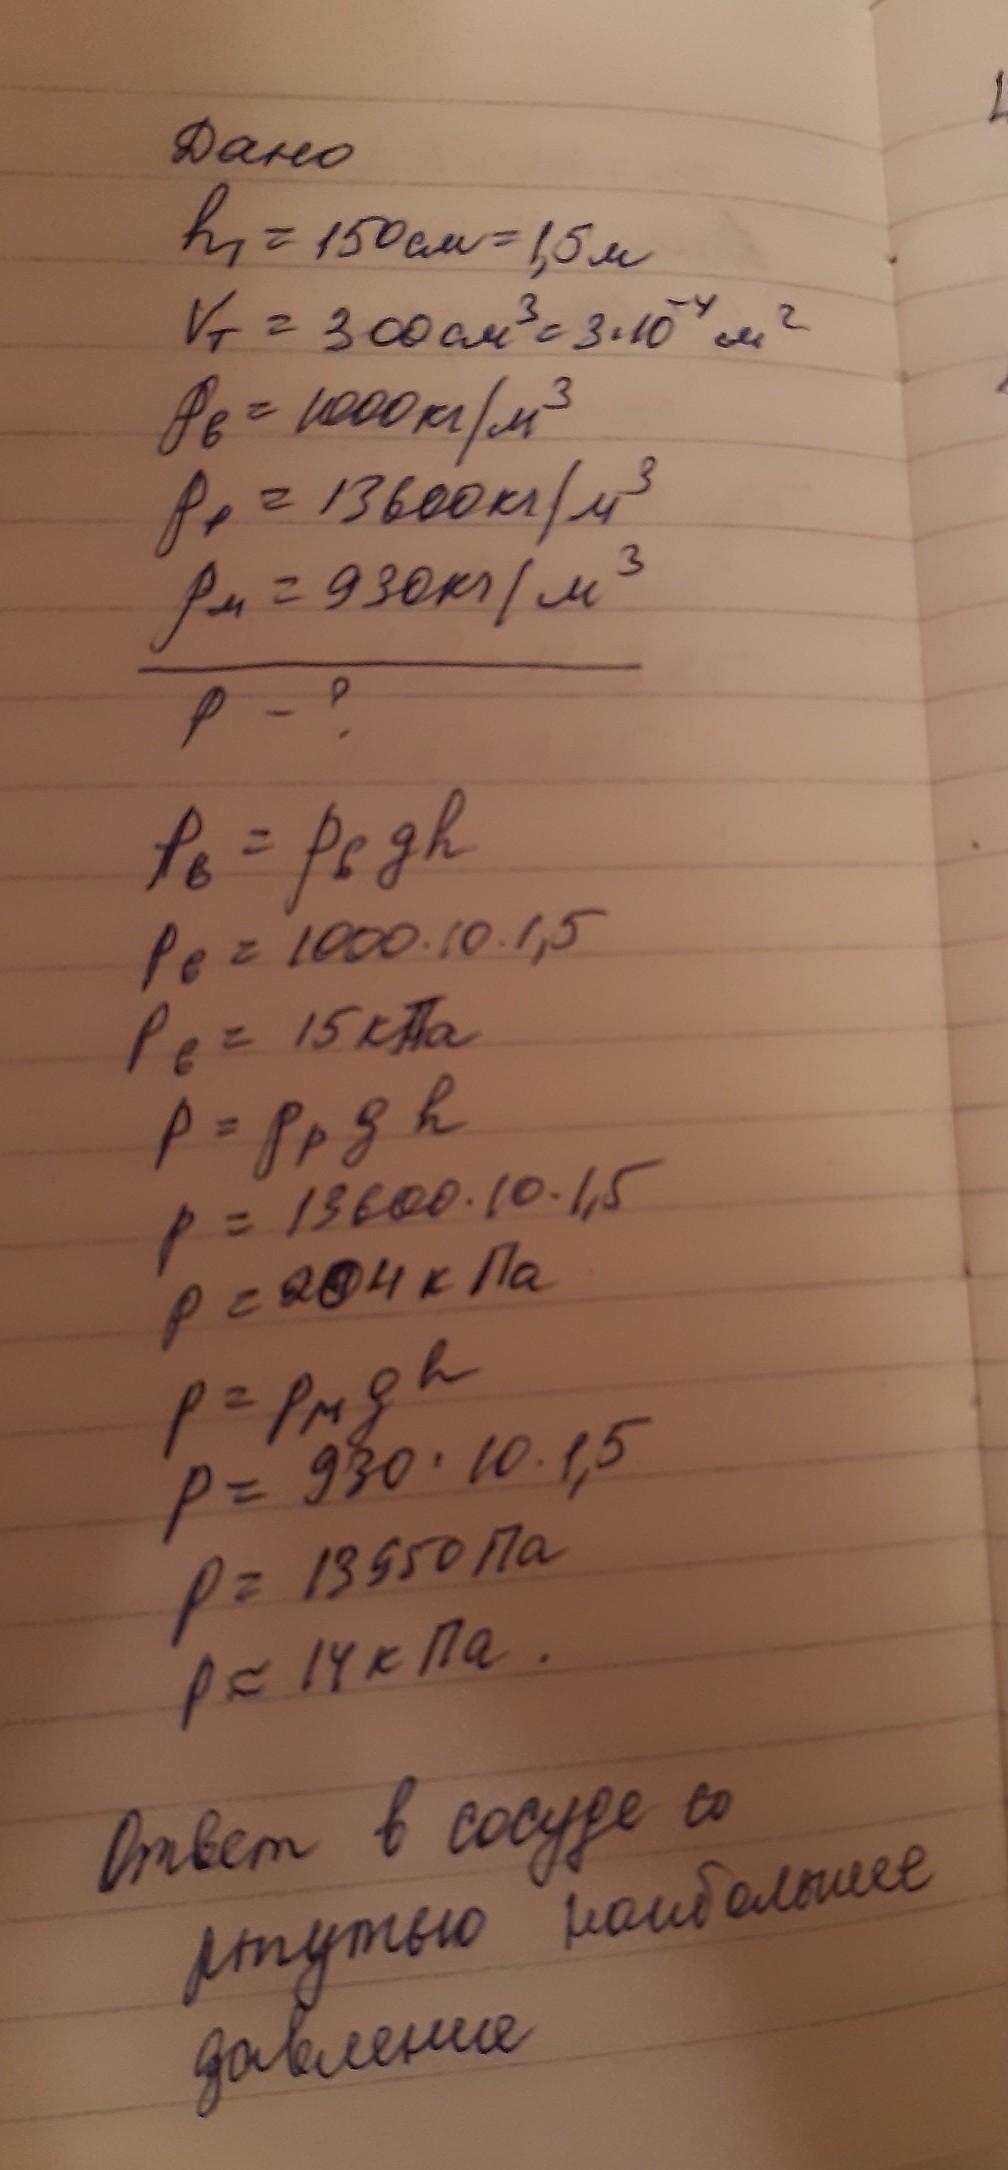 Дано
h₁ = 150см = 1,5м
Vт = 300см³ = 3·10⁻⁴ м²
ρв = 1000кг/м³
ρр = 13600кг/м³
ρм = 930кг/м³
p - ?
Pв = ρв gh
Pв = 1000·10·1,5
Pв = 15кПа
p = ρр g h
p = 13600·10·1,5
p = 204кПа
p = ρм g h
p = 930·10·1,5
p = 13950Па
p ≈ 14кПа.
Ответ в сосуде со
ртутью наибольшее
давление